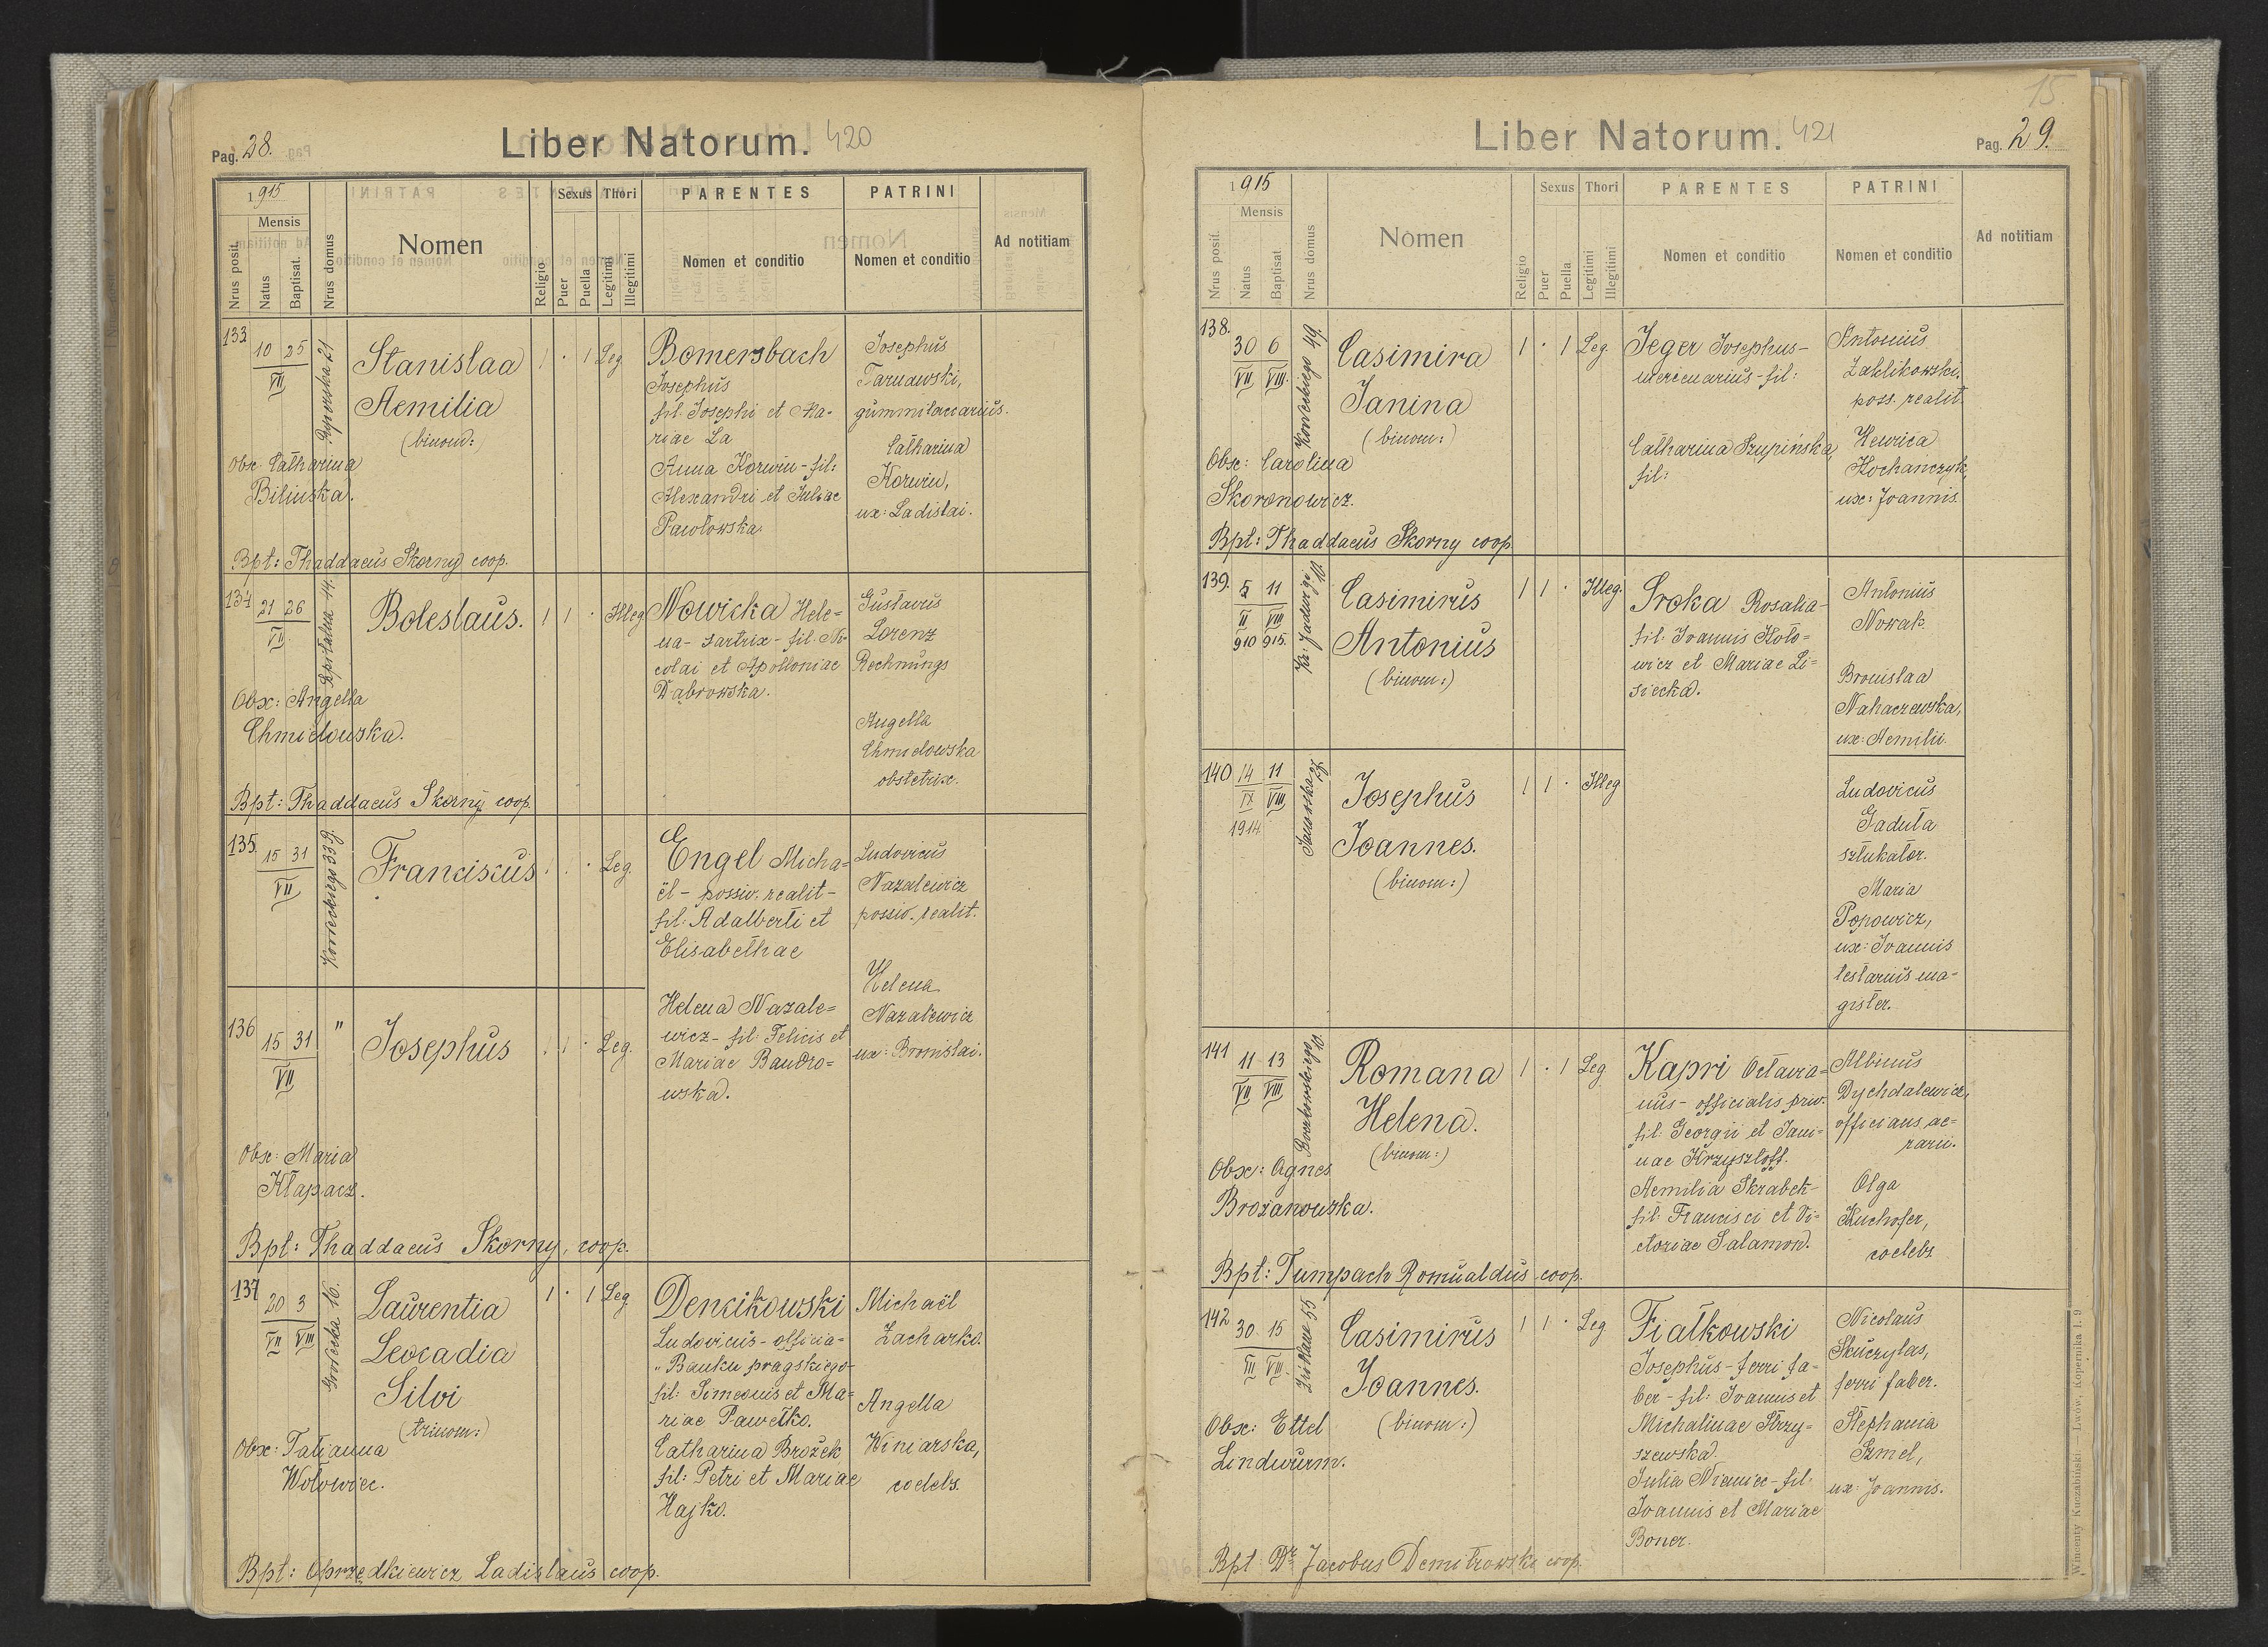 Pag. 28.
Liber Natorum. 420
1915
Mensis
Nrus posit.
Natus
Baptisat.
Nrus domus
Nomen
Religio
Sexus
Puer
Puella
Thori
Legitimi
Illegitimi
PARENTES
Nomen et conditio
PATRINI
Nomen et conditio
Ad notitiam
133
10 25
VII
21
Stanislaa
Aemilia
(binom:)
1 · 1 Leg
Bomersbach
Josephus
fil. Josephi et Ma-
riae La
Anna Korwin - fil:
Alexandri et Juliae
Pawłowska.
Josephus
Tarnawski,
Catharina
Korwin,
ux: Ladislai.
Obx: Catharina
Bilinska.
Bpt: Thaddaeus Skorny coop.
134
21 26
VII
Szpitalna 44.
Boleslaus.
1 1 · Illeg
Nowicka Hele=
na - sartrix - fil. Ni-
colai et Apolloniae
Dąbrowska.
Gustavus
Lorenz
Rechnungs
Angella
Chmielowska
obstetrix.
Obx: Angella
Chmielowska.
Bpt: Thaddaeus Skorny coop.
135
15 31
VII
Kordeckiego 339.
Franciscus
1 1 · Leg.
Engel Micha=
ël - possiv. realit -
fil: Adalberti et
Elisabethae
Helena Nazale=
wicz - fil: Felicis et
Mariae Bandro=
wska.
Ludovicus
Nazalewicz
possiv. realit.
Helena
Nazalewicz
ux: Bronislai.
136
15 31
VII
"
Josephus
1 1 · Leg.
Obx: Maria
Kłapacz.
Bpt: Thaddaeus Skorny, coop.
137
20 3
VII VIII
Grodecka 16.
Laurentia
Leocadia
Silvi
(trinom:)
1 · 1 Leg.
Dencikowski
Ludovicus - officia=
" Banku pragskiego -
fil: Simeonis et Ma=
riae Pawełko.
Catharina Brożek
fil: Petri et Mariae
Hajko.
Michaël
Zacharko.
Angella
Winiarska,
coelebs.
Obx: Tatianna
Wołowiec.
Bpt: Oprzędkiewicz Ladislaus coop.
15
Liber Natorum. 421
Pag. 29.
1915
Mensis
Nrus posit.
Natus
Baptisat
Nrus domus
Nomen
Religio
Sexus
Puer
Puella
Thori
Legitimi
Illegitimi
PARENTES
Nomen et conditio
PATRINI
Nomen et conditio
Ad notitiam
138.
30 6
VII VIII.
Kordeckiego 49.
Casimira
Janina
(binom:)
1 · 1 Leg.
Jeger Josephus -
mercenarius - fil:
Catharina Szupińska,
fil:
Antonius
Zaklikowski,
poss. realit.
Henrica
Kochańczyk,
ux: Joannis.
Obx: Carolina
Skoronowicz.
Bpt: Thaddaeus Skorny coop
139.
5 11
II VIII
910 915.
Kr: Jadwigi 10.
Casimirus
Antonius
(binom:)
1 1 · Illeg.
Sroka Rosalia -
fil: Joannis Koło=
wicz et Mariae Li=
siecka.
Antonius
Nowak.
Bronislaa
Nahaczewska,
ux: Aemilii.
140
14 11
IX VIII
1914
Janowska
Josephus
Joannes.
(binom:)
1 1 · Illeg
Ludovicus
Gaduła
sztukator.
Maria
Popowicz,
ux: Joannis
testarius ma-
gister.
141
11 13
VII VIII
10.
Romana
Helena.
(binom:)
1 · 1 Leg
Kapri Octavia=
nus - officialis priv.
fil: Georgii et Jani=
nae Krzysztoff.
Aemilia Skrabek -
fil: Francisci et Vi=
ctoriae Salamon.
Albinus
Dychdalewicz,
officians ae=
rarii.
Olga
Kuchofer,
coelebs
Obx: Agnes
Brożanowska.
Bpt: Tumpach Romualdus coop.
142
30 15
III VIII.
55
Casimirus
Joannes.
(binom:)
1 1 · Leg
Fiałkowski
Josephus - ferri fa=
ber - fil: Joannis et
Michalinae Strzy=
szewska.
Julia Niemiec - fil:
Joannis et Mariae
Boner.
Nicolaus
Skuczylas,
ferri faber.
Stephania
Szmel,
ux: Joannis.
Obx: Ettel
Lindwurm.
Bpt. Dr Jacobus Demitrowski coop.
Wincenty Kuczabiński — Lwów, Kopernika l. 9